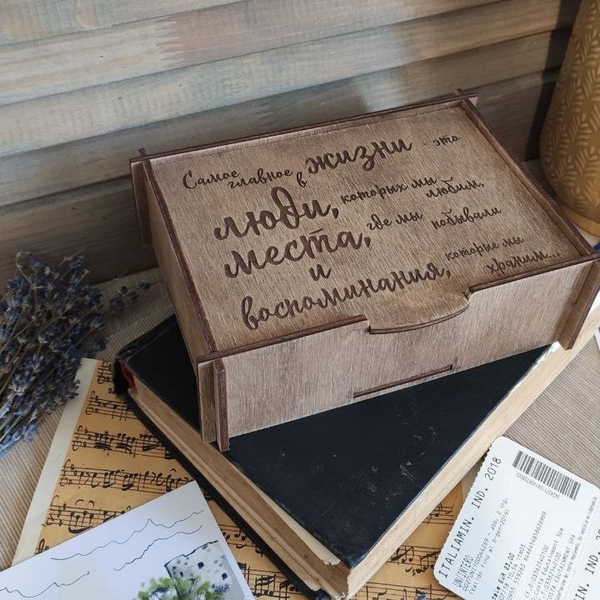 Самое главное в жизни - это
люди, которых мы любим,
места, где мы побывали
и
воспоминания, которые мы храним...
ITALIAMIN. IND. 2018